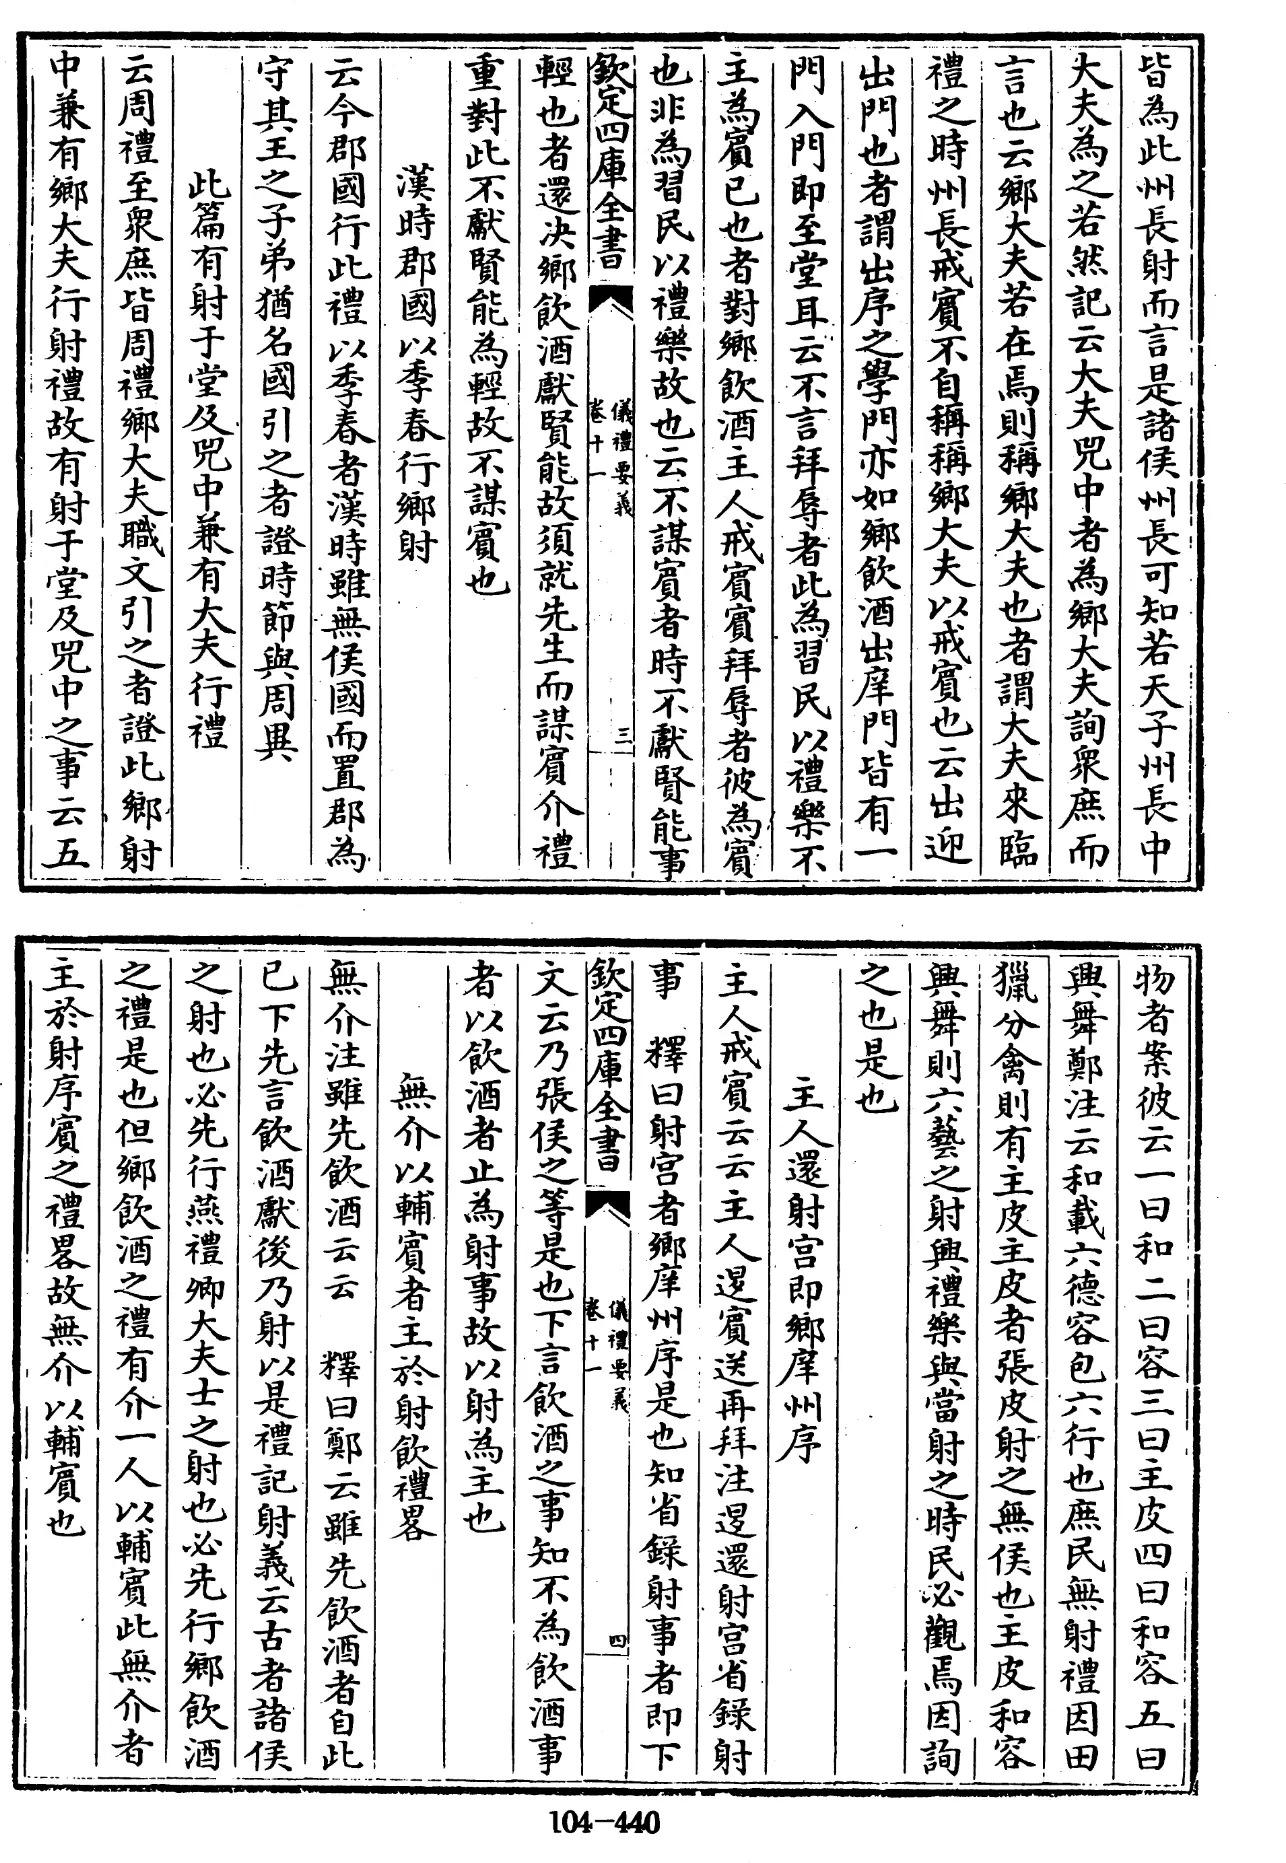 皆為此州長射而言是諸侯州長可知若天子州長中
大夫為之若然記云大夫兕中者為鄉大夫詢衆庶而
言也云鄉大夫若在焉則稱鄉大夫也者謂大夫來臨
禮之時州長戒賓不自稱稱鄉大夫以戒賓也云出迎
出門也者謂出序之學門亦如鄉飲酒出庠門皆有一
門入門即至堂耳云不言拜辱者此為習民以禮樂不
主為賓已也者對鄉飲酒主人戒賓賓拜辱者彼為賓
也非為習民以禮樂故也云不謀賓者時不獻賢能事
欽定四庫全書
儀禮要義
卷十一
三
輕也者還决鄉飲酒獻賢能故須就先生而謀賓介禮
重對此不獻賢能為輕故不謀賓也
漢時郡國以季春行鄉射
云今郡國行此禮以季春者漢時雖無侯國而置郡為
守其王之子弟猶名國引之者證時節與周異
此篇有射于堂及兕中兼有大夫行禮
云周禮至衆庶皆周禮鄉大夫職文引之者證此鄉射
中兼有鄉大夫行射禮故有射于堂及兕中之事云五
物者案彼云一曰和二曰容三曰主皮四曰和容五曰
興舞鄭注云和載六德容包六行也庶民無射禮因田
獵分禽則有主皮主皮者張皮射之無侯也主皮和容
興舞則六藝之射興禮樂與當射之時民必觀焉因詢
之也是也
主人還射宮即鄉庠州序
主人戒賓云云主人退賓送再拜注退還射宮省錄射
事　釋曰射宮者鄉庠州序是也知省錄射事者即下
欽定四庫全書
儀禮要義
卷十一
四
文云乃張侯之等是也下言飲酒之事知不為飲酒事
者以飲酒者止為射事故以射為主也
無介以輔賓者主於射飲禮畧
無介注雖先飲酒云云　釋曰鄭云雖先飲酒者自此
已下先言飲酒獻後乃射以是禮記射義云古者諸侯
之射也必先行燕禮卿大夫士之射也必先行鄉飲酒
之禮是也但鄉飲酒之禮有介一人以輔賓此無介者
主於射序賓之禮畧故無介以輔賓也
104-440